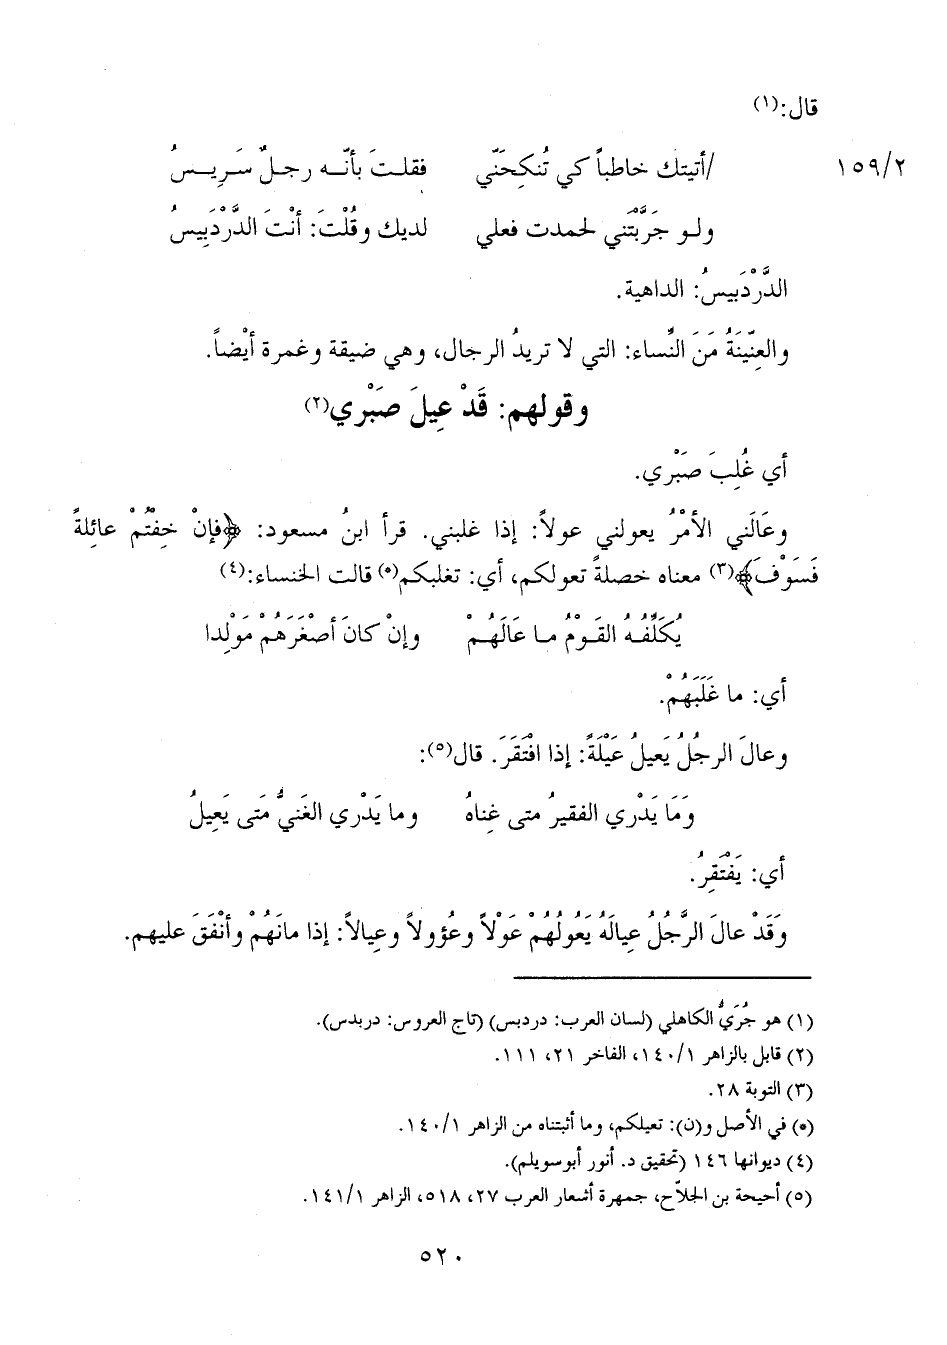 قال:(١)
١٥٩/٢ /أتيتك خاطباً كي تُنكِحَنّي فقلـتَ بأنّـه رجـلٌ سَـرِيـسُ
ولـو جَرَّبْتَني لحمدت فعلي لديك وقُلْتَ: أنْتَ الدَّرْدَبِيسُ
الدَّرْدَبيسُ: الداهية.
والعِنِّينَةُ مَنَ النِّساء: التي لا تريدُ الرجال، وهي ضيقة وغمرة أيْضاً.
وقولهم: قَدْ عِيلَ صَبْري(٢)
أي غُلِبَ صَبْري.
وعَالَني الأمْرُ يعولني عولاً: إذا غلبني. قرأ ابنُ مسعود: ﴿فإنْ خِفْتُمْ عائلةً
فَسَوْفَ﴾(٣) معناه خصلةً تعولكم، أي: تغلبكم(*) قالت الخنساء:(٤)
يُكَلِّفُـهُ القَـوْمُ مـا عَالَهُـمْ وإنْ كانَ أصْغَرَهُمْ مَوْلِدا
أي: ما غَلَبَهُمْ.
وعالَ الرجُلُ يَعيلُ عَيْلَةً: إذا افْتَقَرَ. قال(٥):
وَمَا يَدْري الفقيرُ متى غِناهُ وما يَدْري الغَنيُّ مَتى يَعِيلُ
أي: يَفْتَقِرُ.
وَقَدْ عالَ الرَّجُلُ عِيالَهُ يَعُولُهُمْ عَوْلاً وعُؤولاً وعِيالاً: إذا مانَهُمْ وأنْفَقَ عليهم.
(١) هو جُرَيُّ الكاهلي (لسان العرب: دردبس) (تاج العروس: دربدس).
(٢) قابل بالزاهر ١٤٠/١، الفاخر ٢١، ١١١.
(٣) التوبة ٢٨.
(*) في الأصل و(ن): تعيلكم، وما أثبتناه من الزاهر ١٤٠/١.
(٤) ديوانها ١٤٦ (تحقيق د. أنور أبوسويلم).
(٥) أحيحة بن الجلاّح، جمهرة أشعار العرب ٢٧، ٥١٨، الزاهر ١٤١/١.
٥٢٠